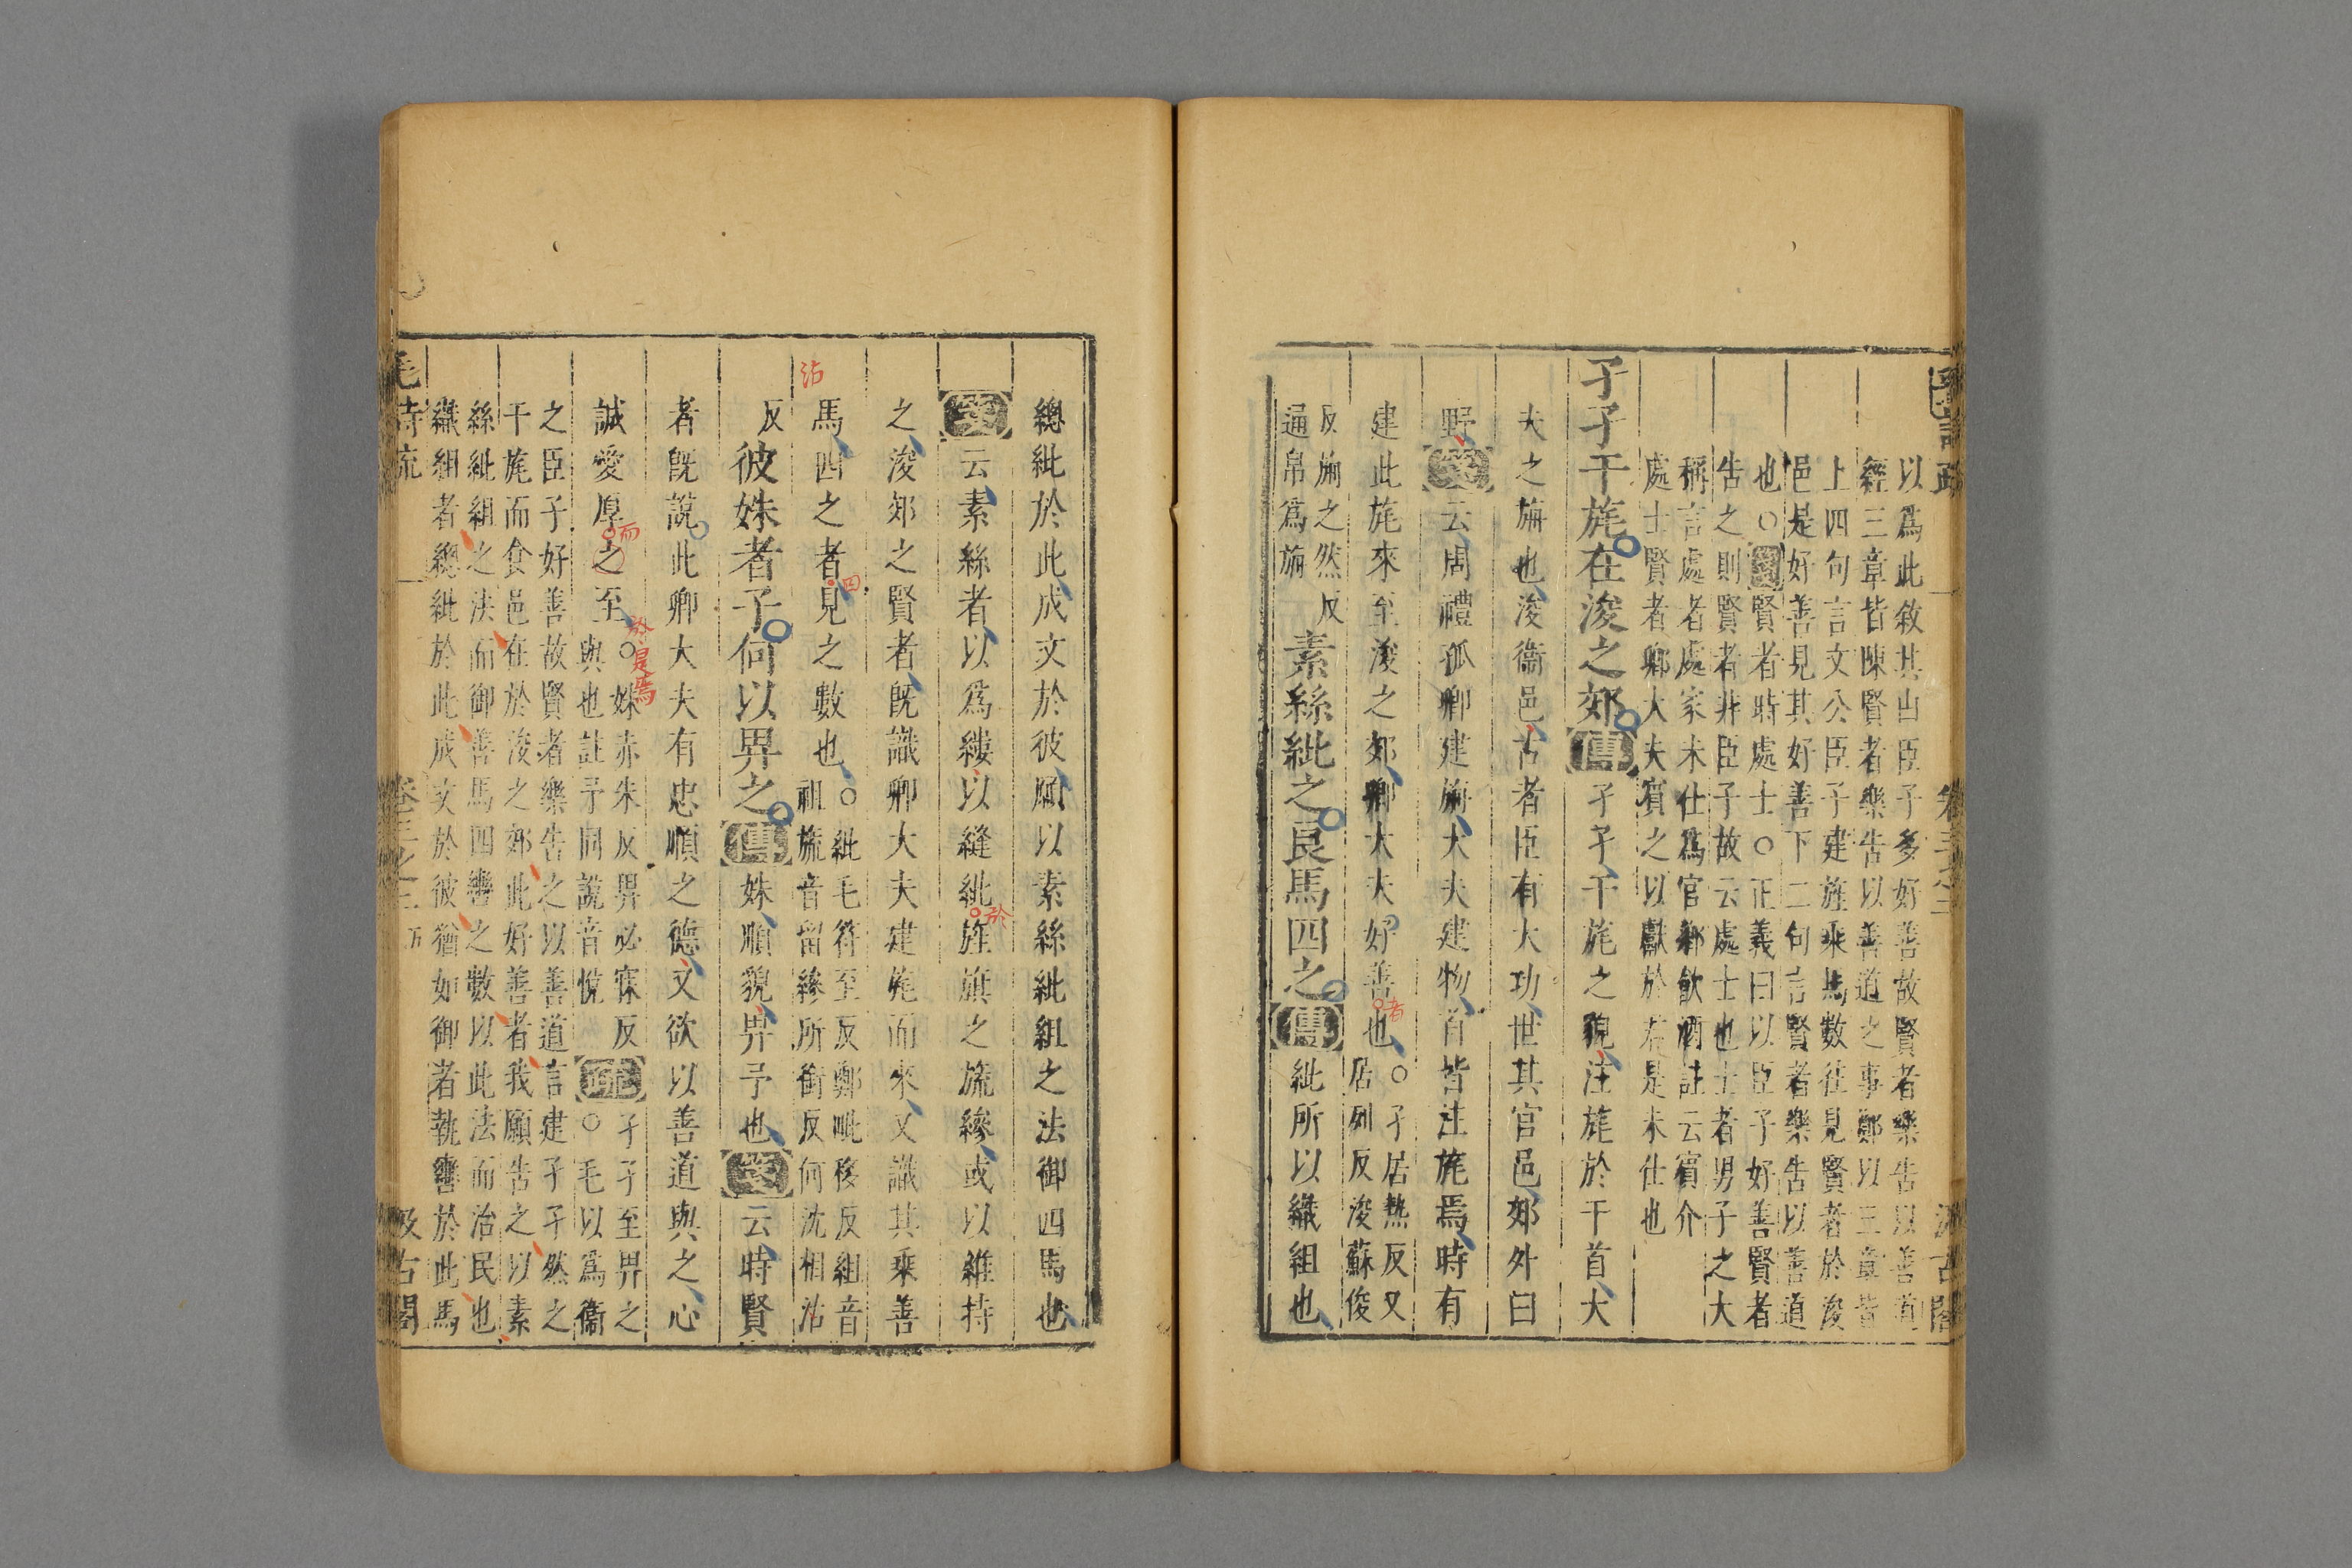 以爲此敘其由臣子多好善故賢者樂告以善道
經三章皆陳賢者樂告以善道之事鄭以三章皆
上四句言文公臣子建旌乘馬數往見賢者於浚
邑是好善見其好善下二句言賢者樂告以善道
也○箋賢者時處士○正義曰以臣子好善賢者
告之則賢者非臣子故云處士也士者男子之大
稱言處者處家未仕爲官鄉飲酒註云賓介
處士賢者鄉大夫賓之以獻於君是未仕也
孑孑干旄在浚之郊傳孑孑干旄之貌注旄於干首大
夫之旃也浚衞邑古者臣有大功世其官邑郊外曰
野箋云周禮孤卿建旃大夫建物首皆注旄焉時有
建此旄來至浚之郊卿大夫好善也○孑居熱反又
居列反浚蘇俊
者
反旃之然反
通帛爲旃
素絲紕之良馬四之傳紕所以織組也
總紕於此成文於彼願以素絲紕組之法御四馬也
箋云素絲者以爲縷以縫紕旌旗之旒縿或以維持
於
之浚郊之賢者既識卿大夫建旄而來又識其乘善
馬四之者見之數也○紕毛符至反鄭毗移反組音
祖旒音留縿所銜反何沈相沾
四
沾
反彼姝者子何以畀之傳姝順貌畀予也箋云時賢
者既說此卿大夫有忠順之德又欲以善道與之心
誠愛厚之至○姝赤朱反畀必寐反
與也註予同說音悅
而
於是焉
疏孑孑至畀之
○毛以爲衞
之臣子好善故賢者樂告之以善道言建孑孑然之
干旄而食邑在於浚之郊此好善者我願告之以素
絲紕組之法而御善馬四轡之數以此法而治民也
織組者總紕於此成文於彼猶如御者執轡於此馬
毛詩疏 卷三之二 五 汲古閣